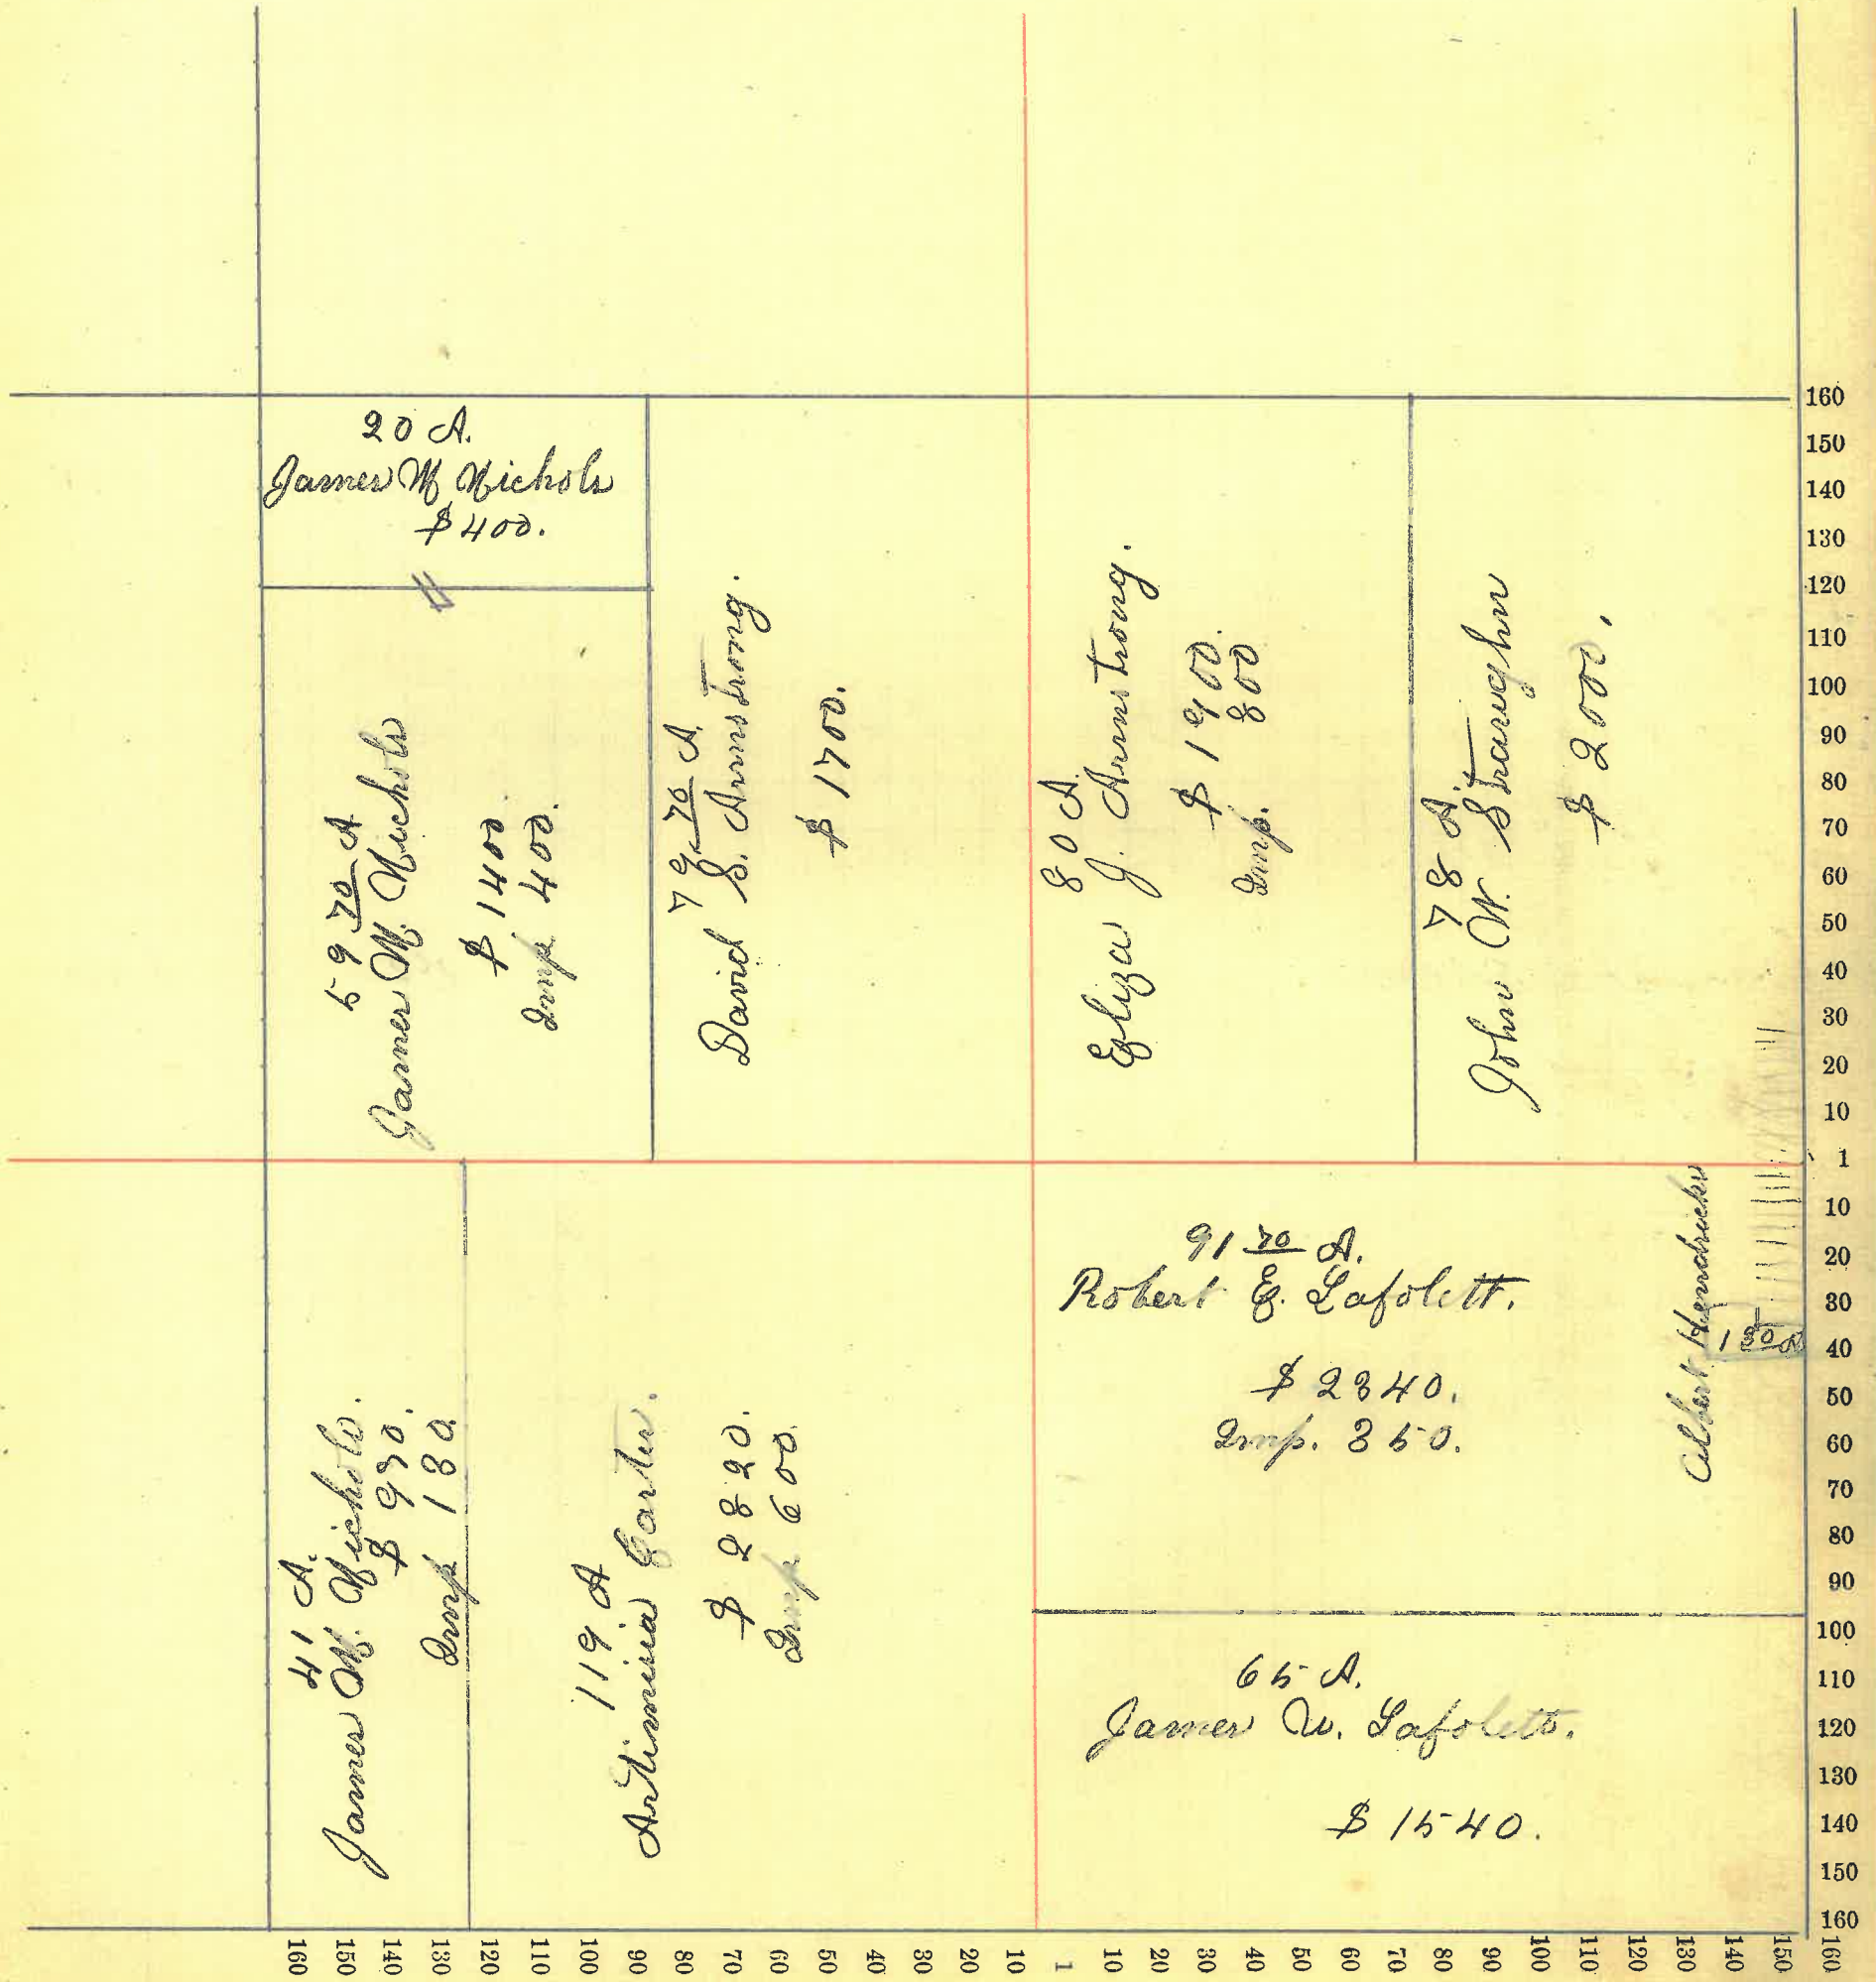 20 A.
James M Nichols
$400.
59 70 A
James M. Nichols
$ 1400
Imp 400.
79 70 A.
David S. Armstrong.
$ 1700.
80 A.
Eliza J. Armstrong.
$ 1900.
Imp. 800
78 A.
John W. Straughn
$ 2000.
41 A.
James M. Nichols.
$ 990.
Imp 130.
119 A
Artimisia Carter.
$ 2820.
Imp 600.
91 70 A.
Robert E. Lafolett.
$ 2340.
Imp. 350.
Albert Hendricks
65 A.
James W. Lafolett.
$ 1540.
160
150
140
130
120
110
100
90
80
70
60
50
40
30
20
10
1
10
20
30
40
50
60
70
80
90
100
110
120
130
140
150
160
160
150
140
130
120
110
100
90
80
70
60
50
40
30
20
10
1
10
20
30
40
50
60
70
80
90
100
110
120
130
140
150
160